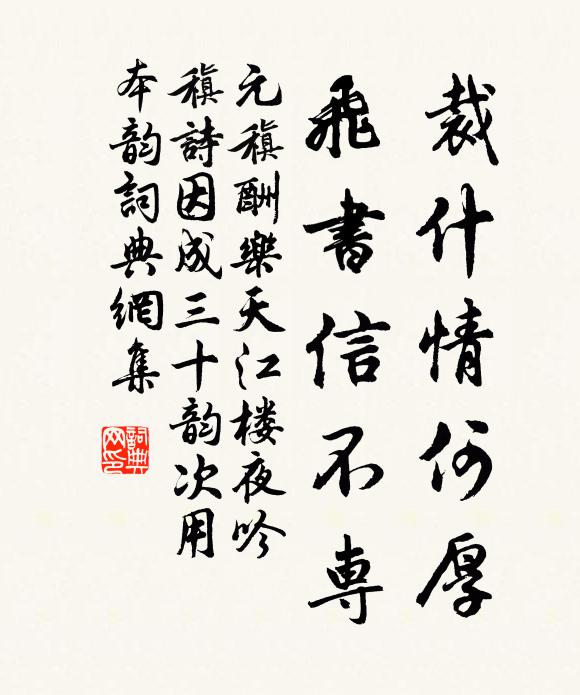 裁什情何厚
飛書信不専
元稹酬樂天江楼夜吟
稹詩因成三十韵次用
本韵詞典網集
詞典
网印